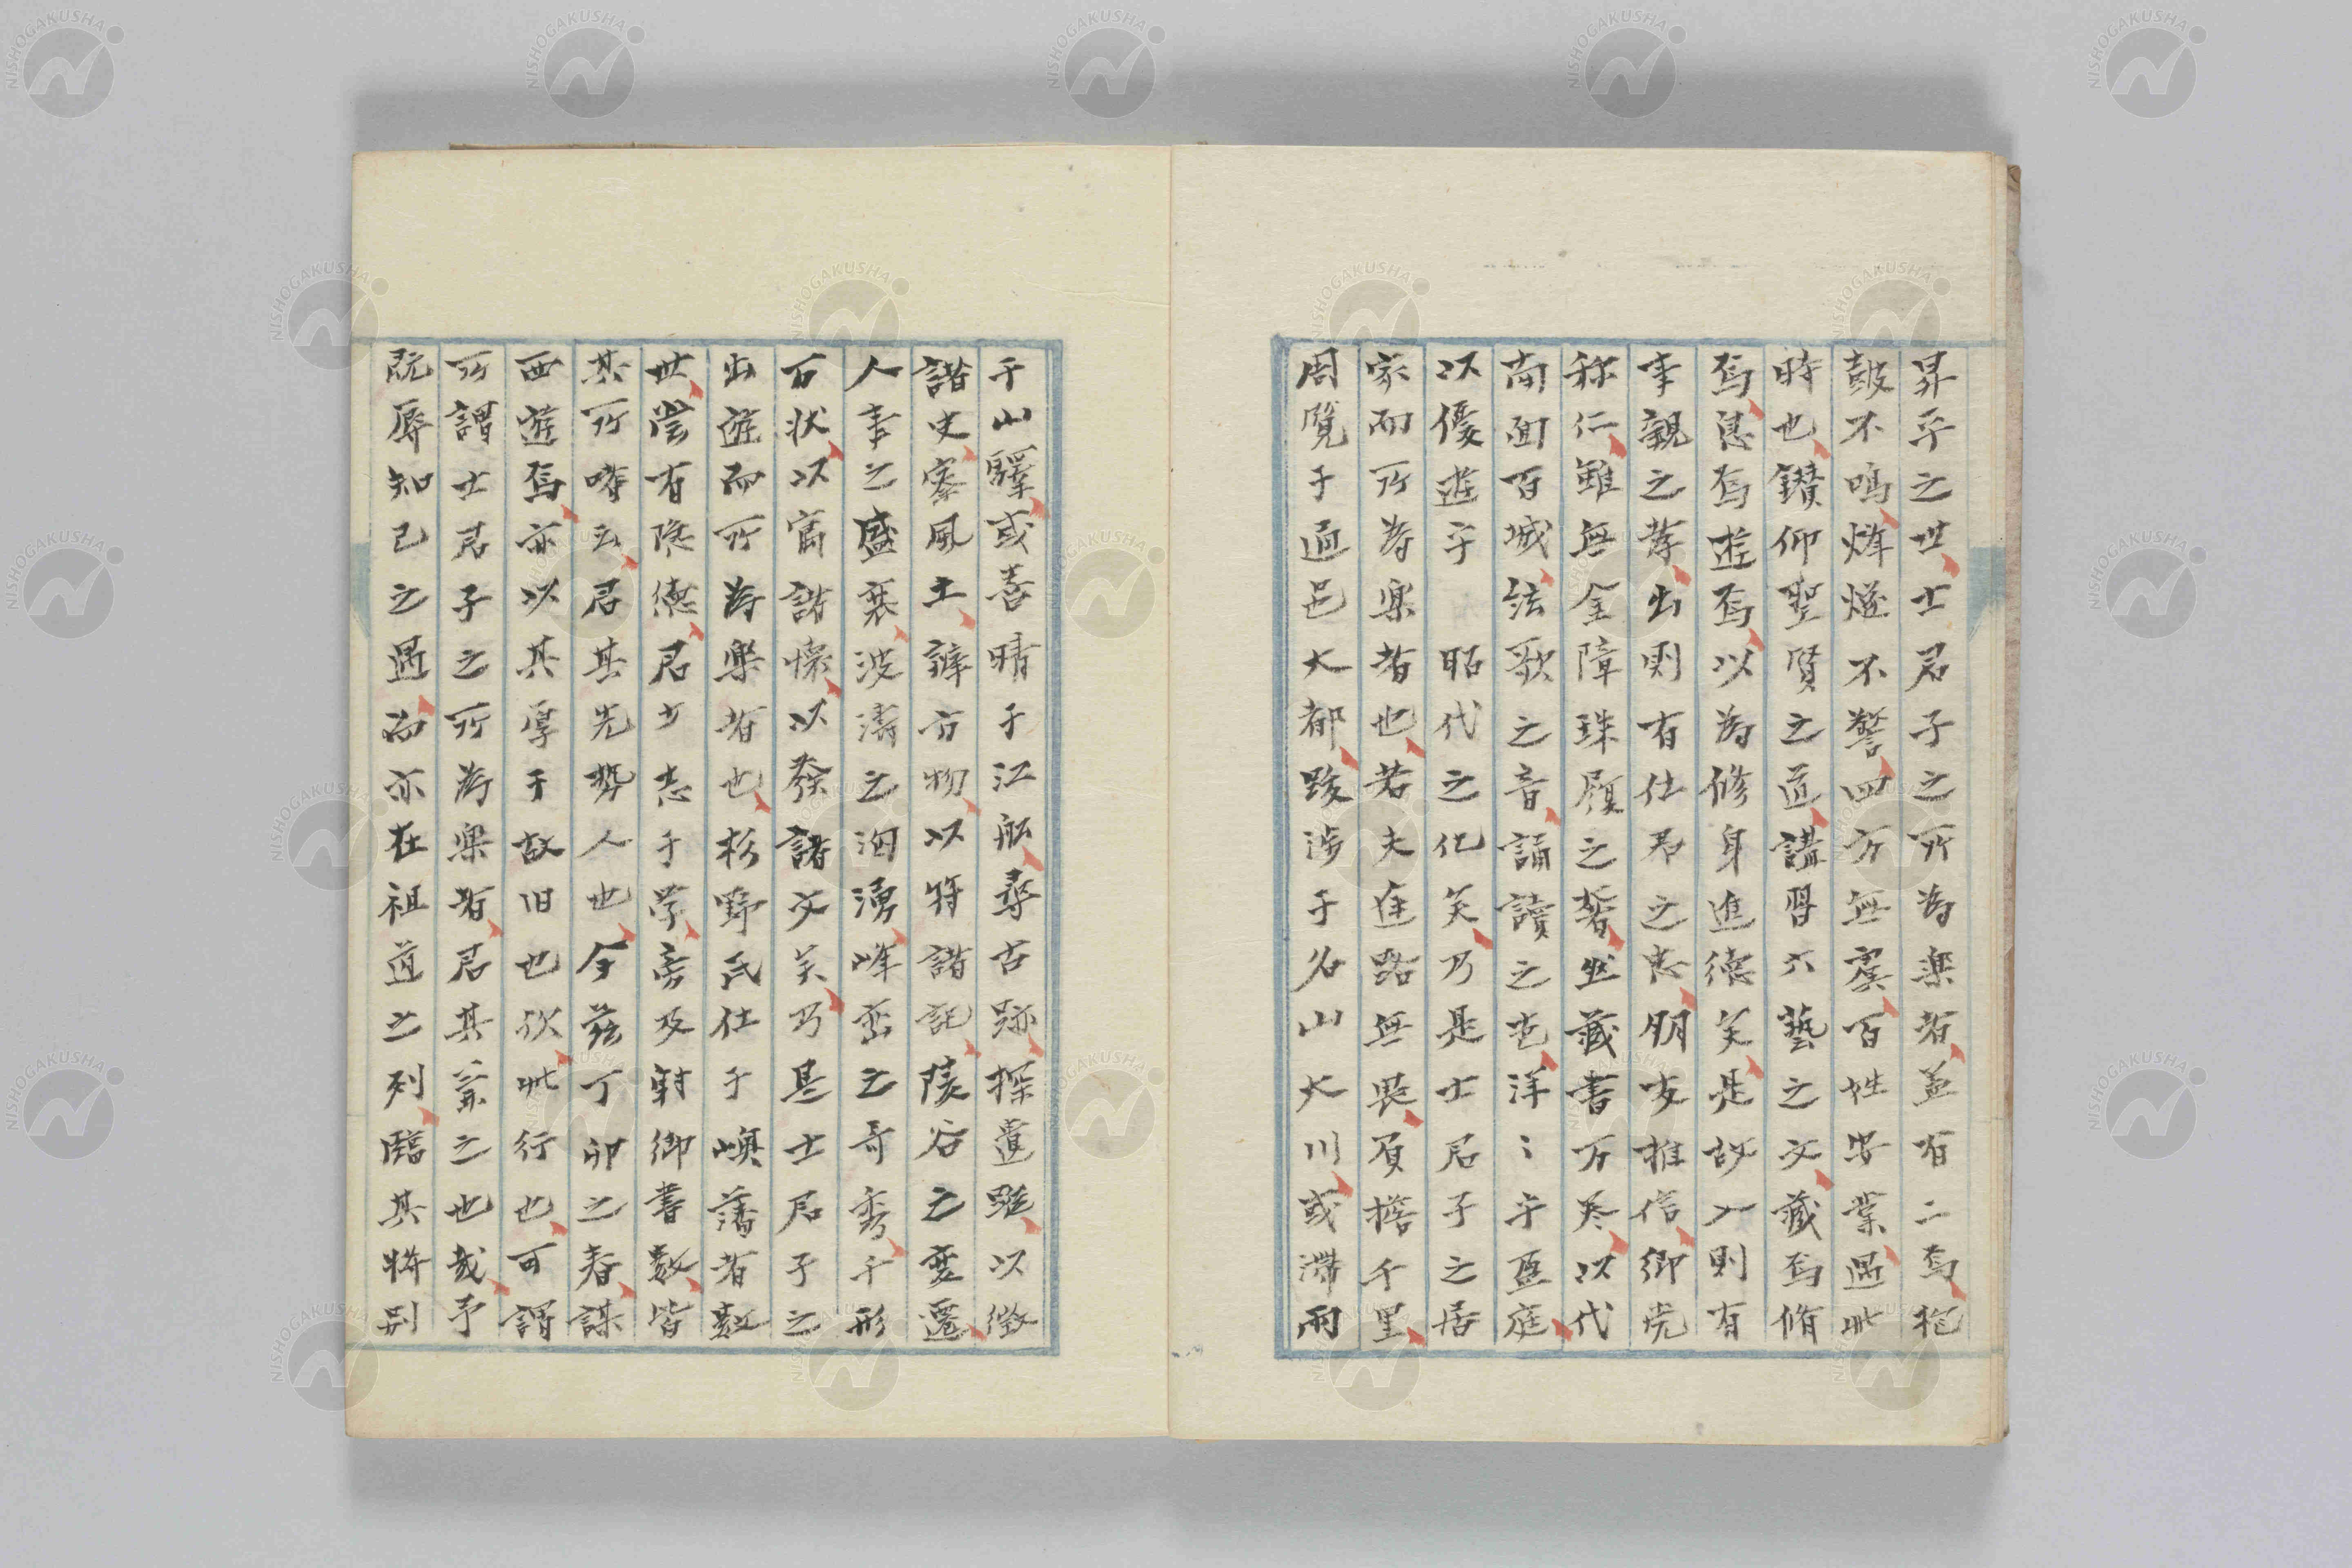 昇平之世士君子之所為楽者盖有二焉枹
皷不鳴烽燧不警四方無虞百姓安業遇此
時也鑚仰聖賢之道講習六藝之文藏焉脩
焉息焉遊焉以為修身進徳矣是故入則有
事親之孝出則有仕君之忠朋友推信郷党
称仁雖無金障珠履之奢坐藏書万巻以代
南面百城絃歌之音誦讀之声洋〻乎盈庭
以優遊乎 昭代之化矣乃是士君子之居
家而所為楽者也若夫産路無畏負擔千里
周覧于通邑大都跋渉于名山大川或滞雨
于山驛或喜晴于江舩尋古跡探遺蹤以徴
諸史察風土辨方物以符諸記陵谷之変遷
人事之盛衰波濤之洶湧峰巒之奇秀千形
万状以寓諸懐以發諸文矣乃是士君子之
出遊而所為楽者也杉野氏仕于嶼藩者數
世嘗有隠徳君少志于学旁及射御書數皆
其所嗜云君其先勢人也今茲丁卯之春謀
西遊焉亦以其厚于故旧也欤此行也可謂
所謂士君子之所為楽者君其兼之也哉予
既辱知己之遇而亦在祖道之列臨其将別
NISHOGAKUSHA